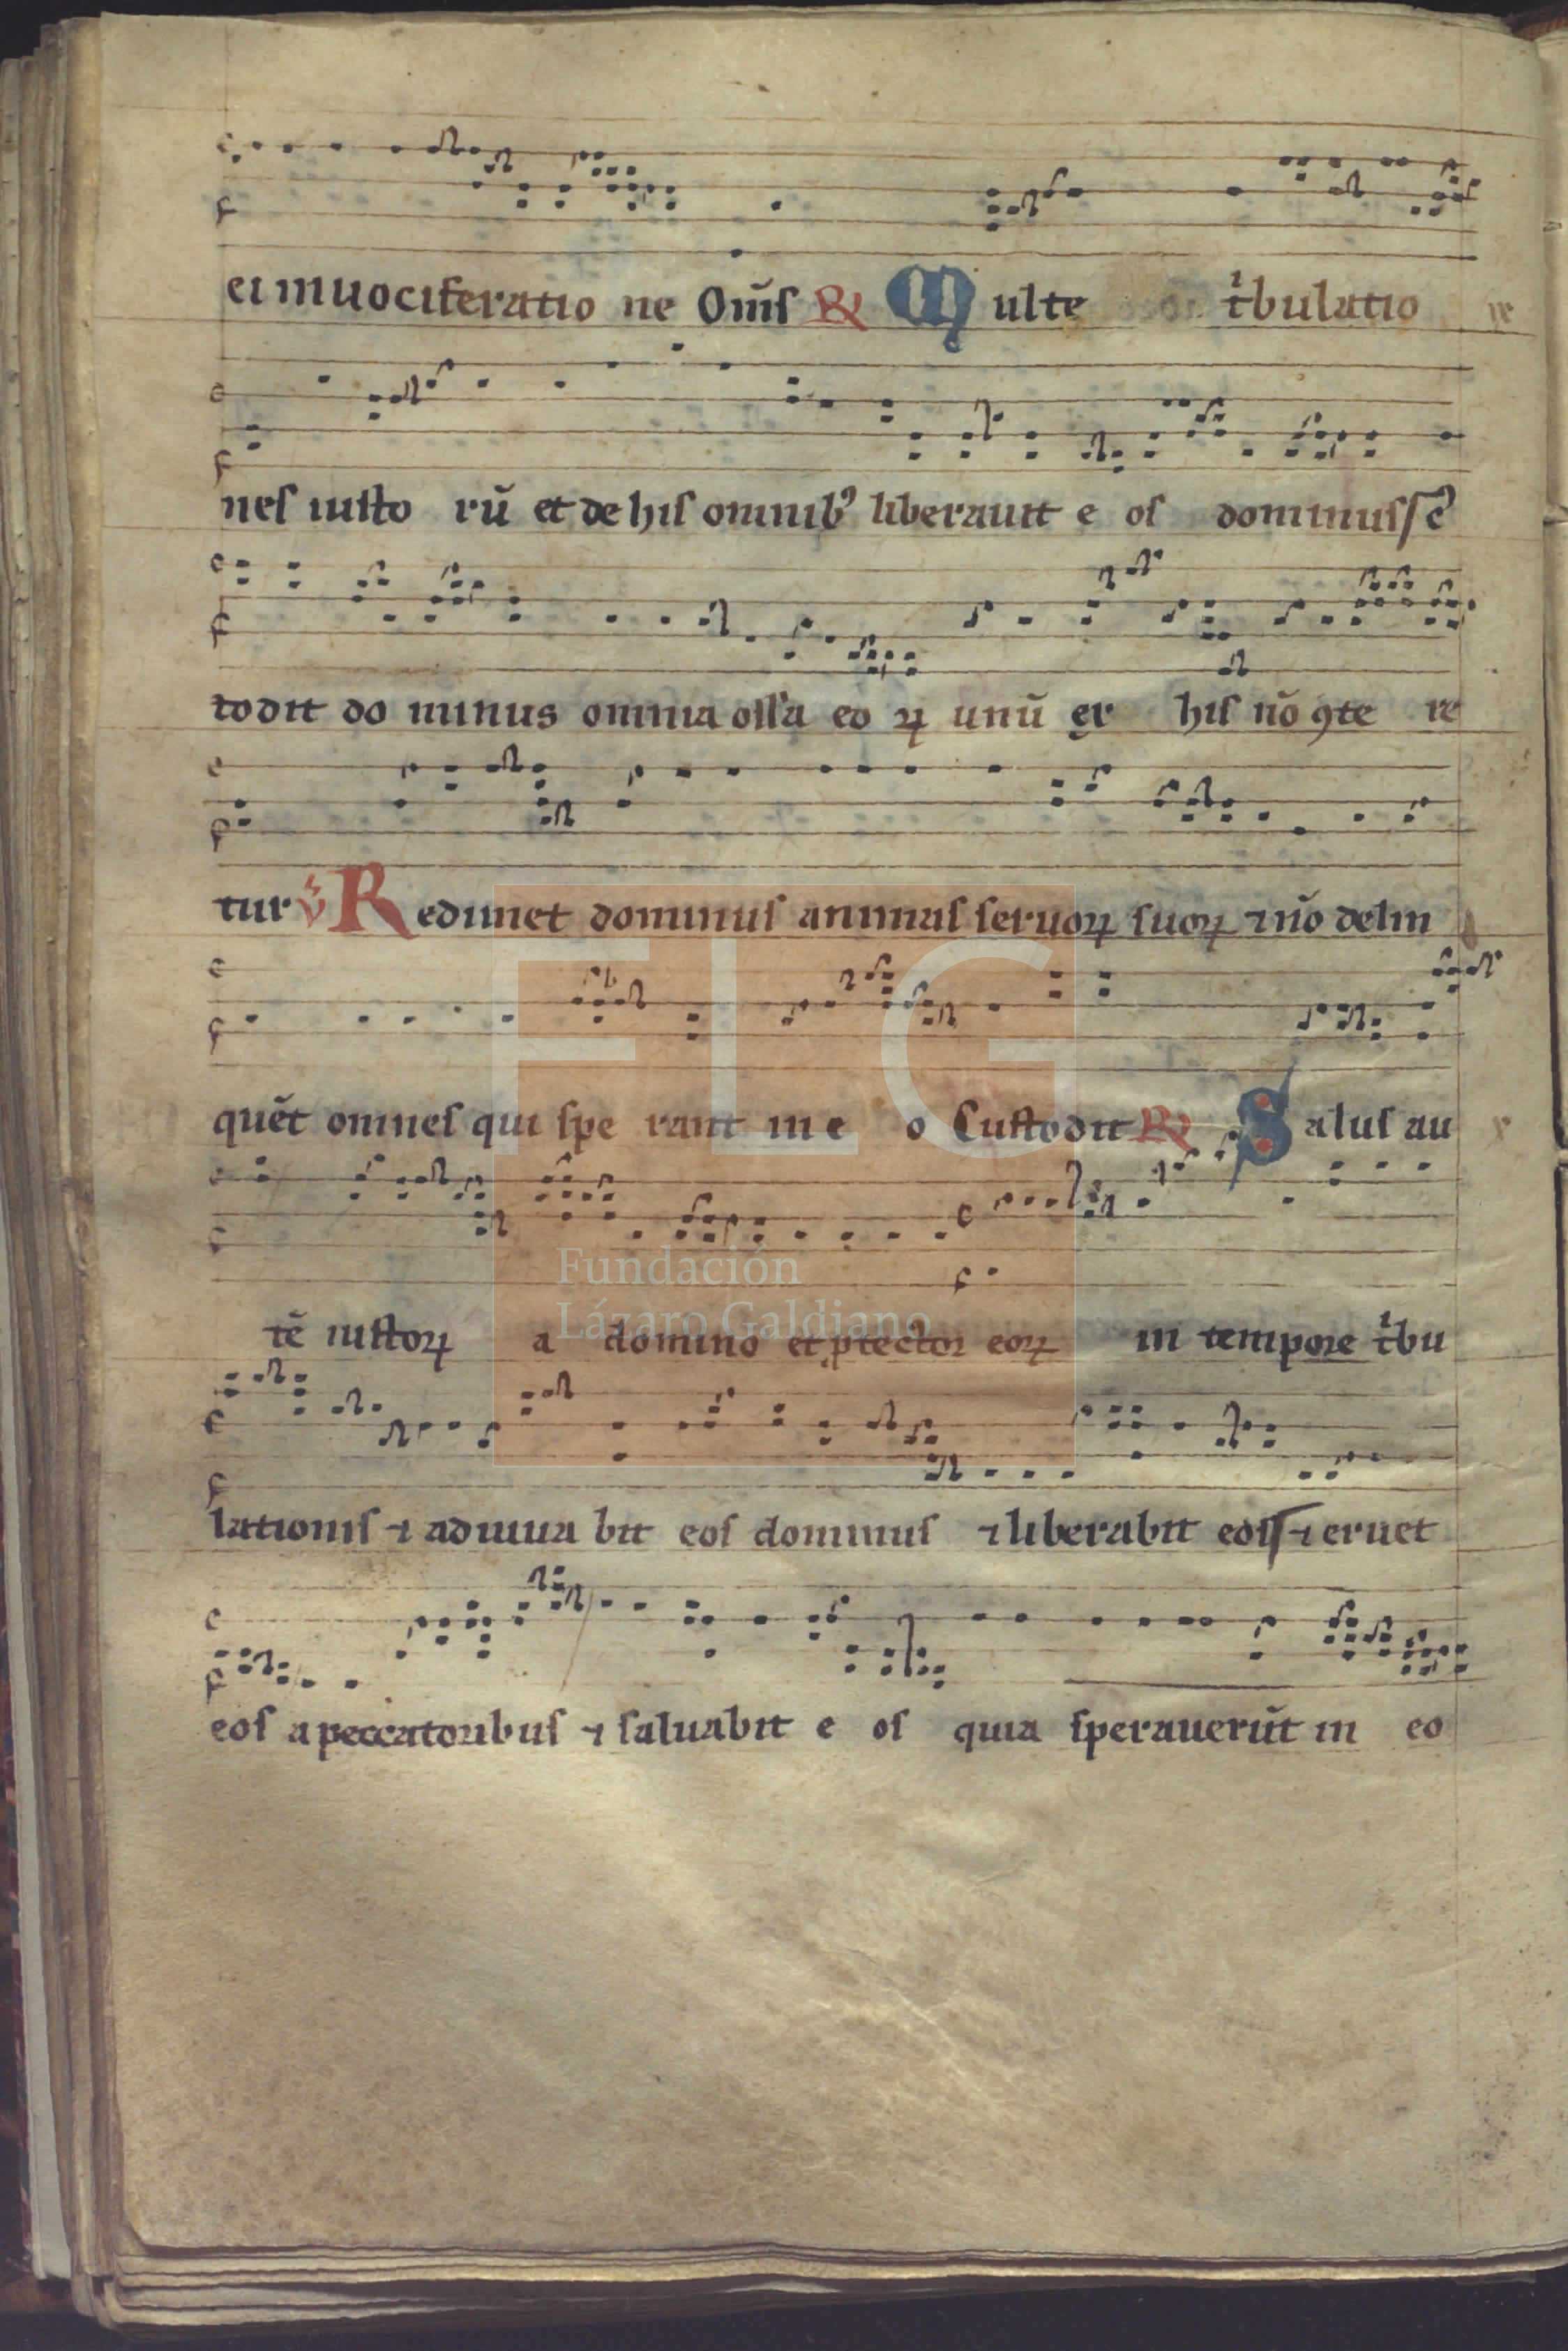 ei in uociferatio ne Om̄s R̷ Multe t̾bulatio ne
nes iusto rū et de his omnibꝰ liberauit e os dominus
todit do minus omnia ossa eo ꝝ unū ex his nō ꝯte re
tur ℣ Redimet dominus animas seruoꝝ suoꝝ ⁊ nō delin
quēt omnes qui spe rant in e o Custodit R̷ Salus au
tē iustoꝝ a domino et ꝓtector eoꝝ in tempore t̾bu
lationis ⁊ adiuua bit eos dominus ⁊ liberabit eos ⁊ eruet
eos a peccatoribus ⁊ saluabit e os quia sperauerūt in eo
FLG
Fundación
Lázaro Galdiano